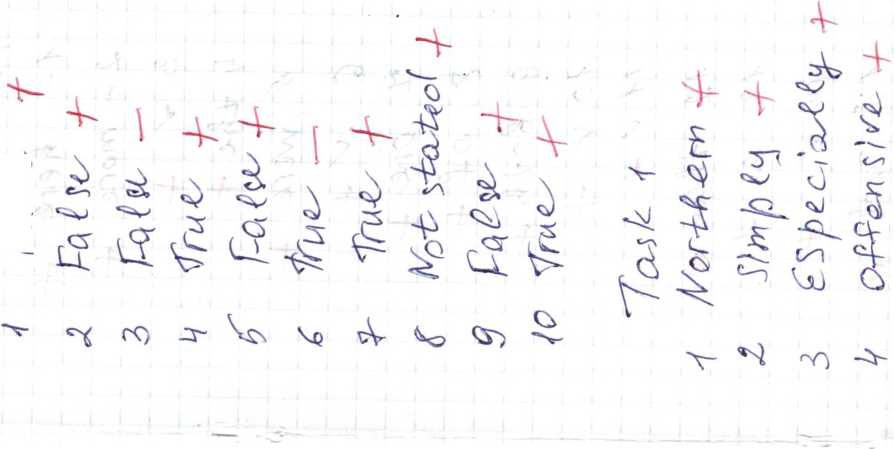 1 +
2 False +
3 False –
4 True +
5 False +
6 True –
7 True +
8 Not stated +
9 False +
10 True +
Task 1
1 Northern +
2 Simply +
3 Especially +
4 Offensive +